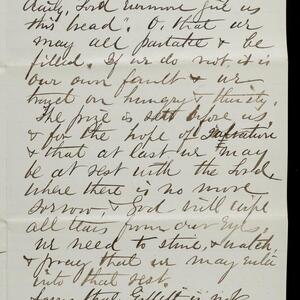 daily, Lord evermore give us
this bread". O, that we
may all partake & be
filled. If we do not, it is
our own fault & we
must on hungry & thirsty.
The prize is sett before us,
& for the hope of Salvation
& that at last we may
be at rest with the Lord,
where there is no more
sorrow, & God will wipe
all tears from our Eyes,
we need to strive, & watch,
& pray that we may enter
into that rest.
that is not